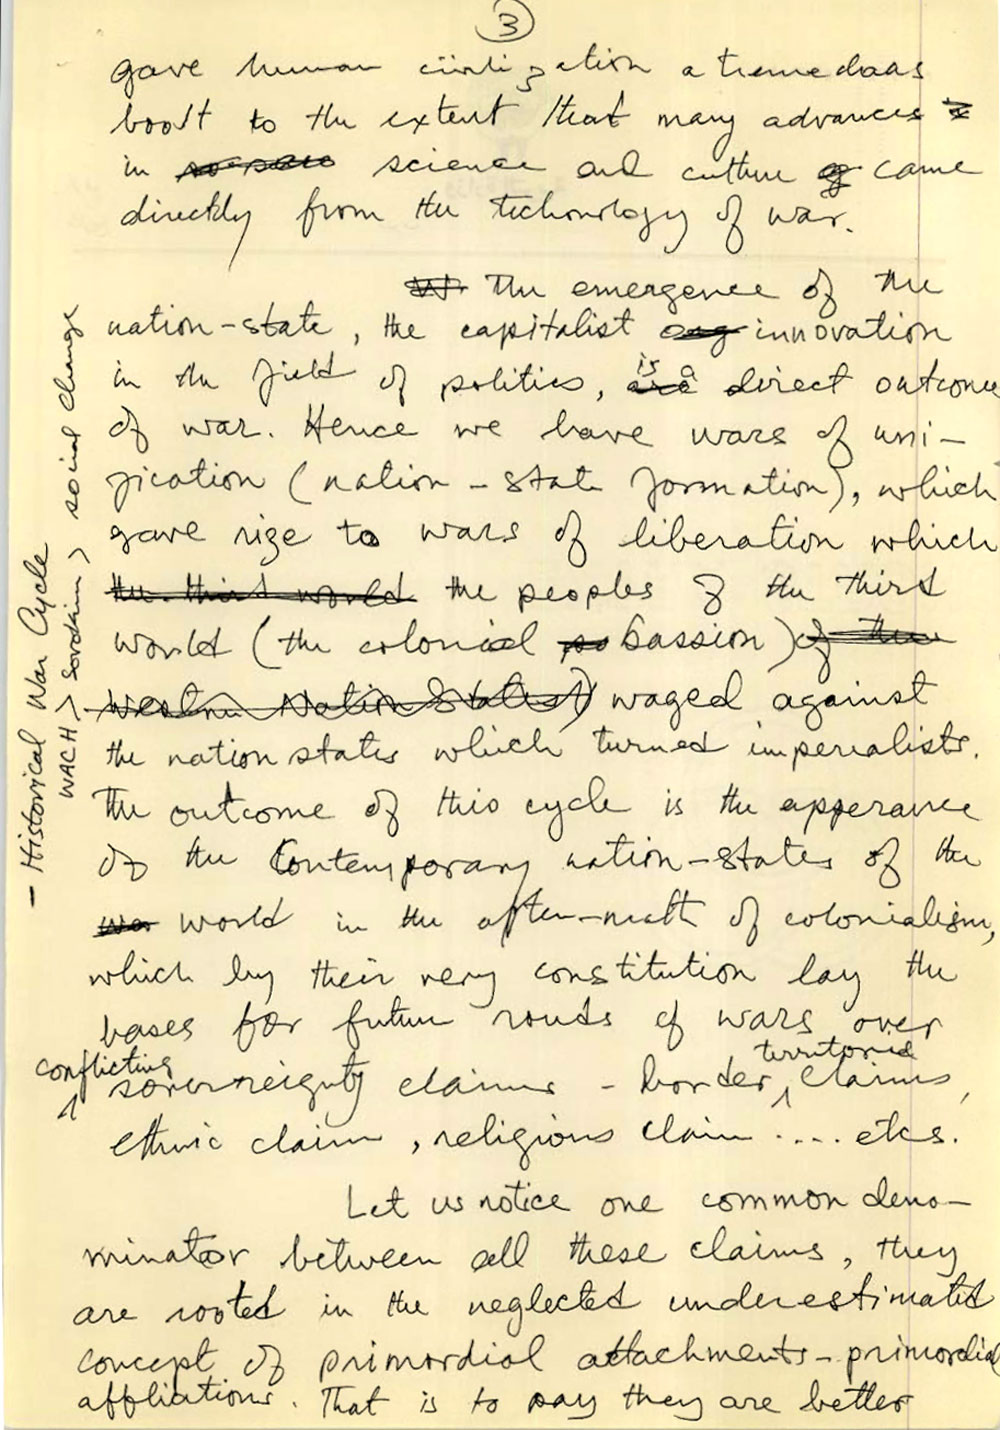 3
gave human civilization a tremedaas
boost to the extent that many advances
in science and culture came
directly from the technology of war.
The emergence of the
nation-state, the capitalist innovation
in the field of politics, is a direct outcome
of war. Hence we have wars of uni-
fication (nation-state formation), which
gave rize to wars of liberation which
the third world the peoples of the third
world (the colonial bassion) of the
Western Nation States) waged against
the nation states which turned imperialists.
The outcome of this cycle is the apperance
of the Contemporary nation-states of the
world in the after-math of colonialism,
which by their very constitution lay the
bases for future rounds of wars over
conflicting sovereignty claims - border territorial claims,
ethnic claim, religious claim ..... etcs.
Let us notice one common deno-
minator between all these claims, they
are rooted in the neglected underestimated
concept of primordial attachments - primordial
affliations. That is to say they are better
- Historical War Cycle
WACH > > social change